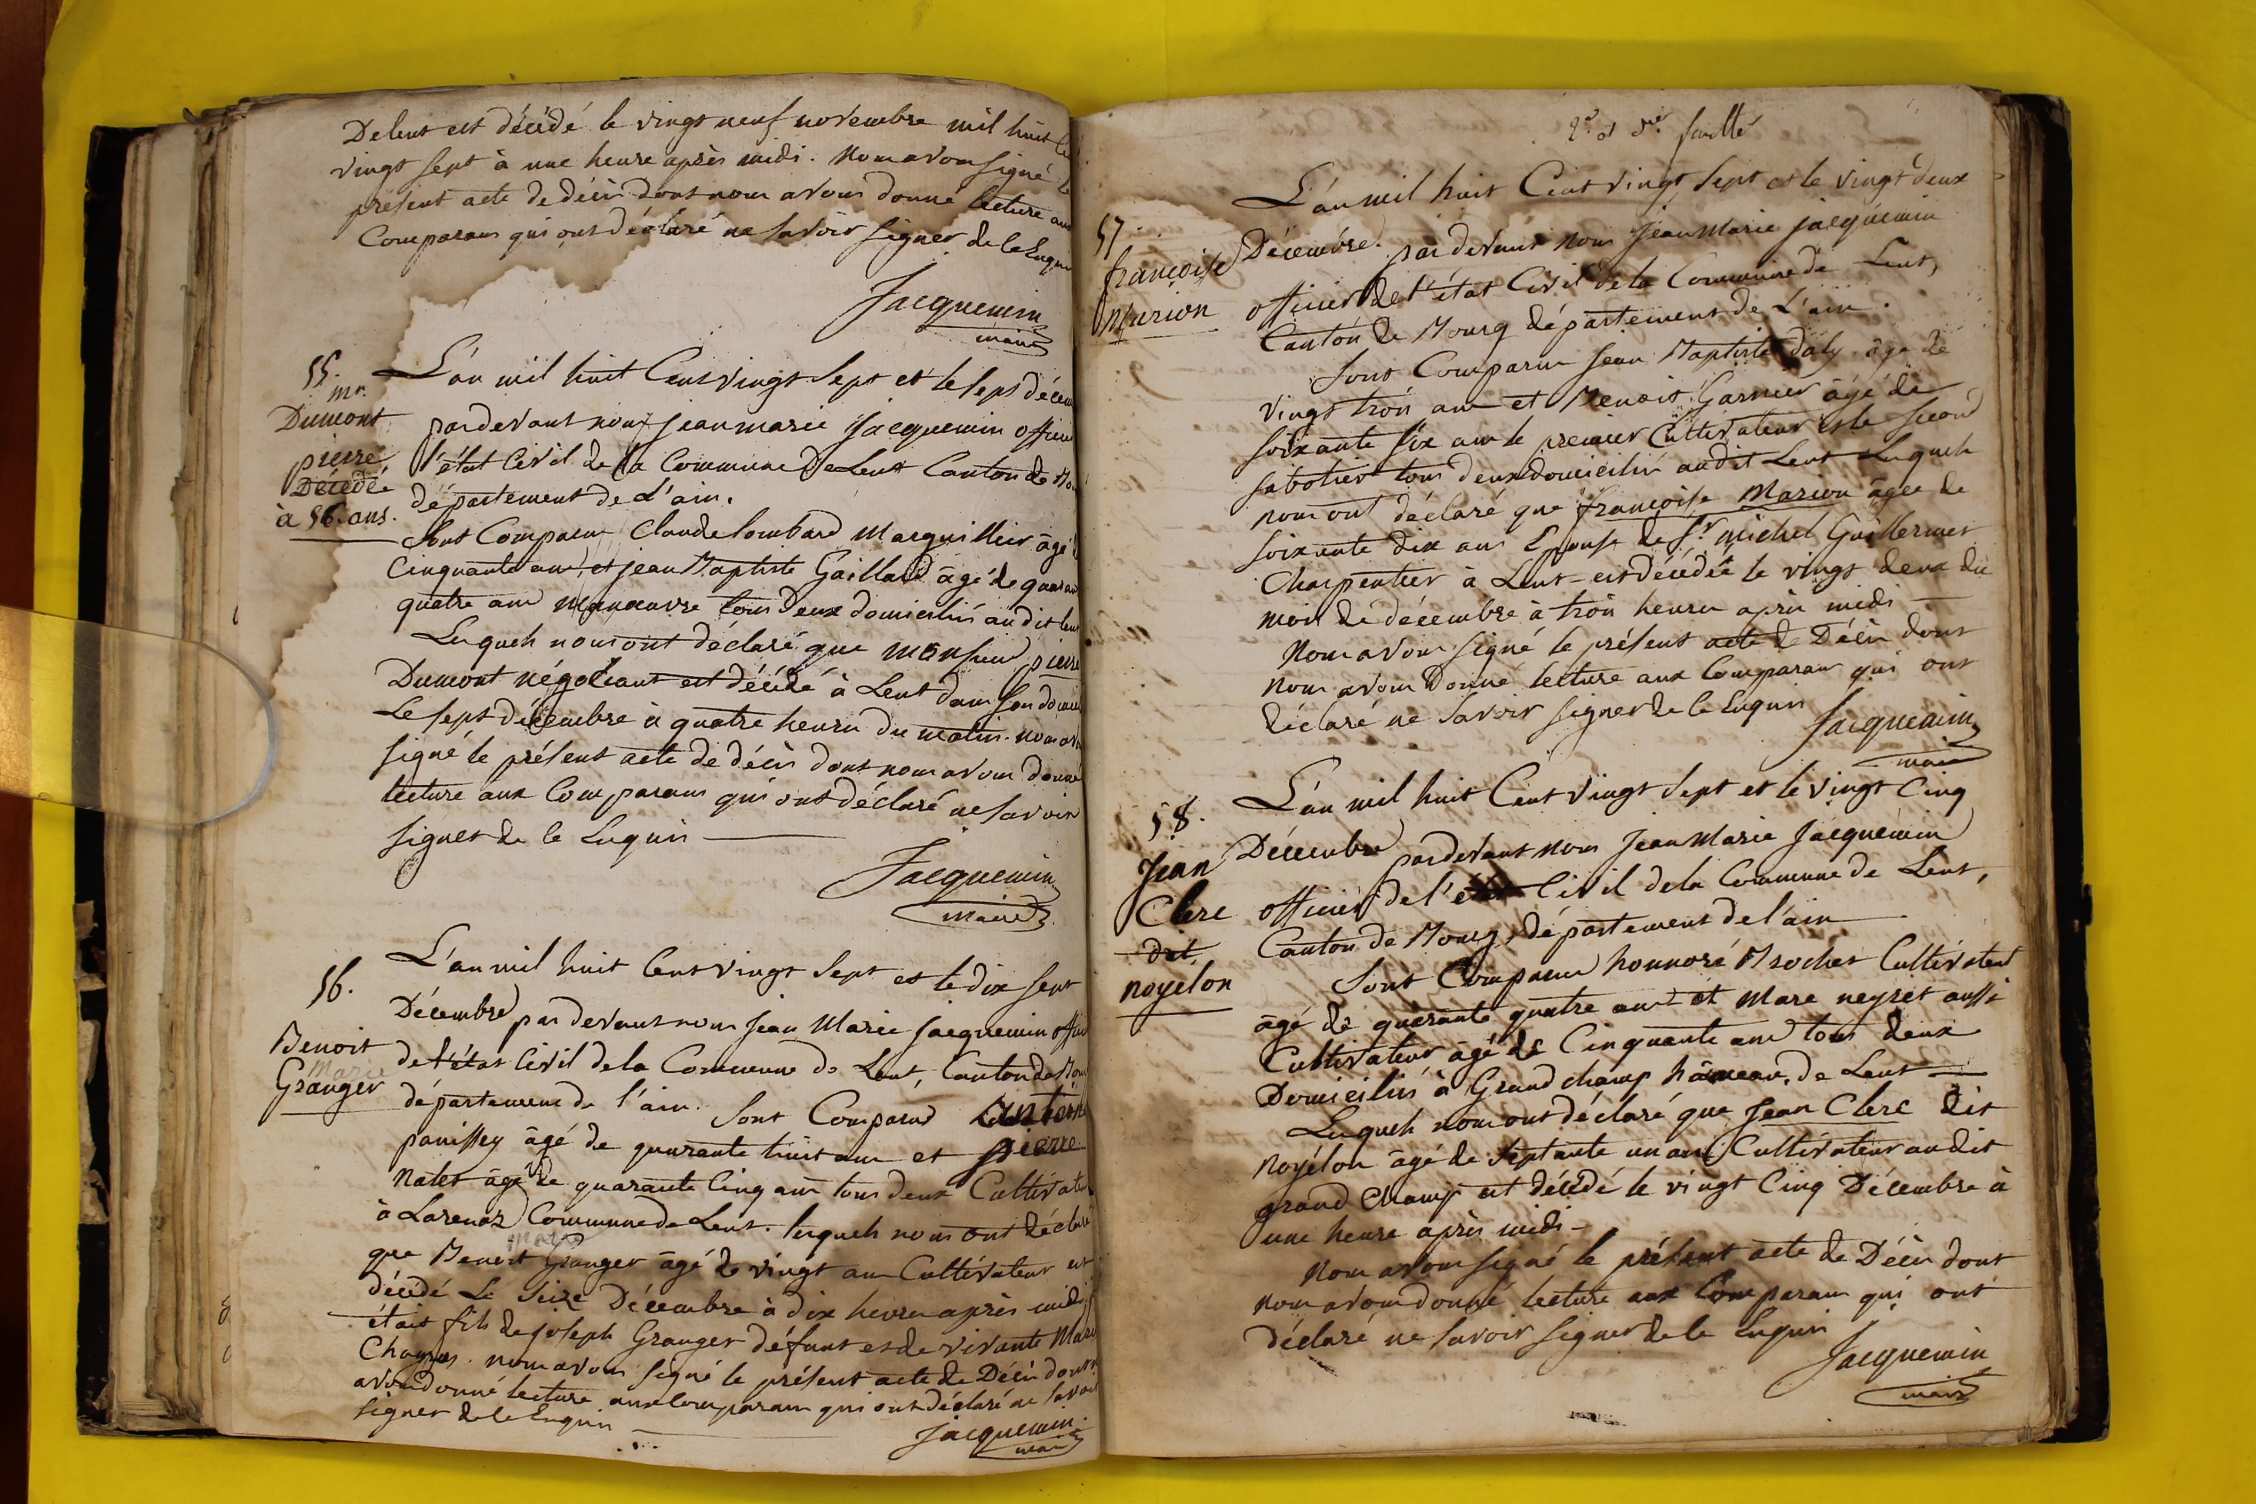 Delent est décédé le vingt neuf novembre mil huit
vingt sept à une heure après midi. Nous avons signé le
présent acte de décès dont nous avons donné lecture aux
Comparans qui ont déclaré ne savoir signer de le Enquis
Jacquemin
maire
55.
mr.
Dumont
pierre
Décédé
à 56 ans.
L'an mil huit Cent vingt sept et le sept décem
pardevant nous jean marie jacquemin officier
l'état Civil de la Commune De Lent Canton de
département de L'ain.
Sont Comparus Claude lombard Marguillier âgé
Cinquante ans, et jean Baptiste Gaillard âgé de quarant
quatre ans manœuvre tous Deux domiciliés audit lent
Lesquels nous ont déclaré que monsieur pierre
Dumont négociant est décédé à Lent dans son domicile
Le sept décembre à quatre heures du matin. nous avons
signé le présent acte de décès dont nous avons donné
lecture aux Comparans qui ont déclaré ne savoir
signer de le Enquis
Jacquemin
maire
56.
Benoit
Marie
Granger
L'an mil huit Cent vingt sept et le dix sept
Décembre par devant nous Jean Marie Jacquemin offici
de l'état Civil de la Commune de Lent, Canton de
département de l'ain. Sont Comparus antoine
panissey âgé de quarante huit ans et pierre
Nalet âgé de quarante Cinq ans tous deux Cultivateur
à Larenaz Commune de Lent. lesquels nous ont déclaré
marie
que Benoit Granger âgé de vingt ans Cultivateur est
décédé Le Seize Décembre à dix heures après midi
était fils de joseph Granger défunt et de vivante Marie
nous avons signé le présent acte de Décès dont
avons donné lecture aux Comparans qui ont déclaré ne savoir
signer de le Enquis
Jacquemin
maire
2e et der. feuille
57.
françoise
Marion
L'an mil huit Cent vingt sept et le vingt deux
Décembre. par devant nous Jean Marie jacquemin
officier de l'état Civil de la Commune de Lent,
Canton de Bourg département de L'ain.
Sont Comparus Jean Baptiste Daly âgé de
vingt trois ans et Benoit Garnier âgé de
soixante six ans le premier Cultivateur et le second
sabotier tous deux domiciliés audit Lent Lesquels
nous ont déclaré que françoise Marion âgée de
soixante dix ans Epouse de Sr. michel Guillermet
Charpentier à Lent est décédée le vingt deux du
mois de décembre à trois heures après midi
Nous avons signé le présent acte de Décès dont
nous avons Donné lecture aux Comparans qui ont
déclaré ne savoir signer de le Enquis
Jacquemin
maire
58.
Jean
Clerc
dit
noyélon
L'an mil huit Cent vingt sept et le vingt Cinq
Décembre pardevant nous Jean Marie Jacquemin
officier de l'état Civil de la Commune de Lent,
Canton de Bourg, département de l'ain
Sont Comparus honnoré Brochet Cultivateur
âgé de quarante quatre ans et Marc neyret aussi
Cultivateur âgé de Cinquante ans tous deux
Domiciliés à Grand champ hâmeau de Lent
Lesquels nous ont déclaré que Jean Clerc dit
Noyélon âgé de septante un ans Cultivateur audit
grand Champ est décédé le vingt Cinq Décembre à
une heure après midi
Nous avons signé le présent acte de Décès dont
nous avons donné lecture aux Comparans qui ont
déclaré ne savoir signer de le Enquis
Jacquemin
maire